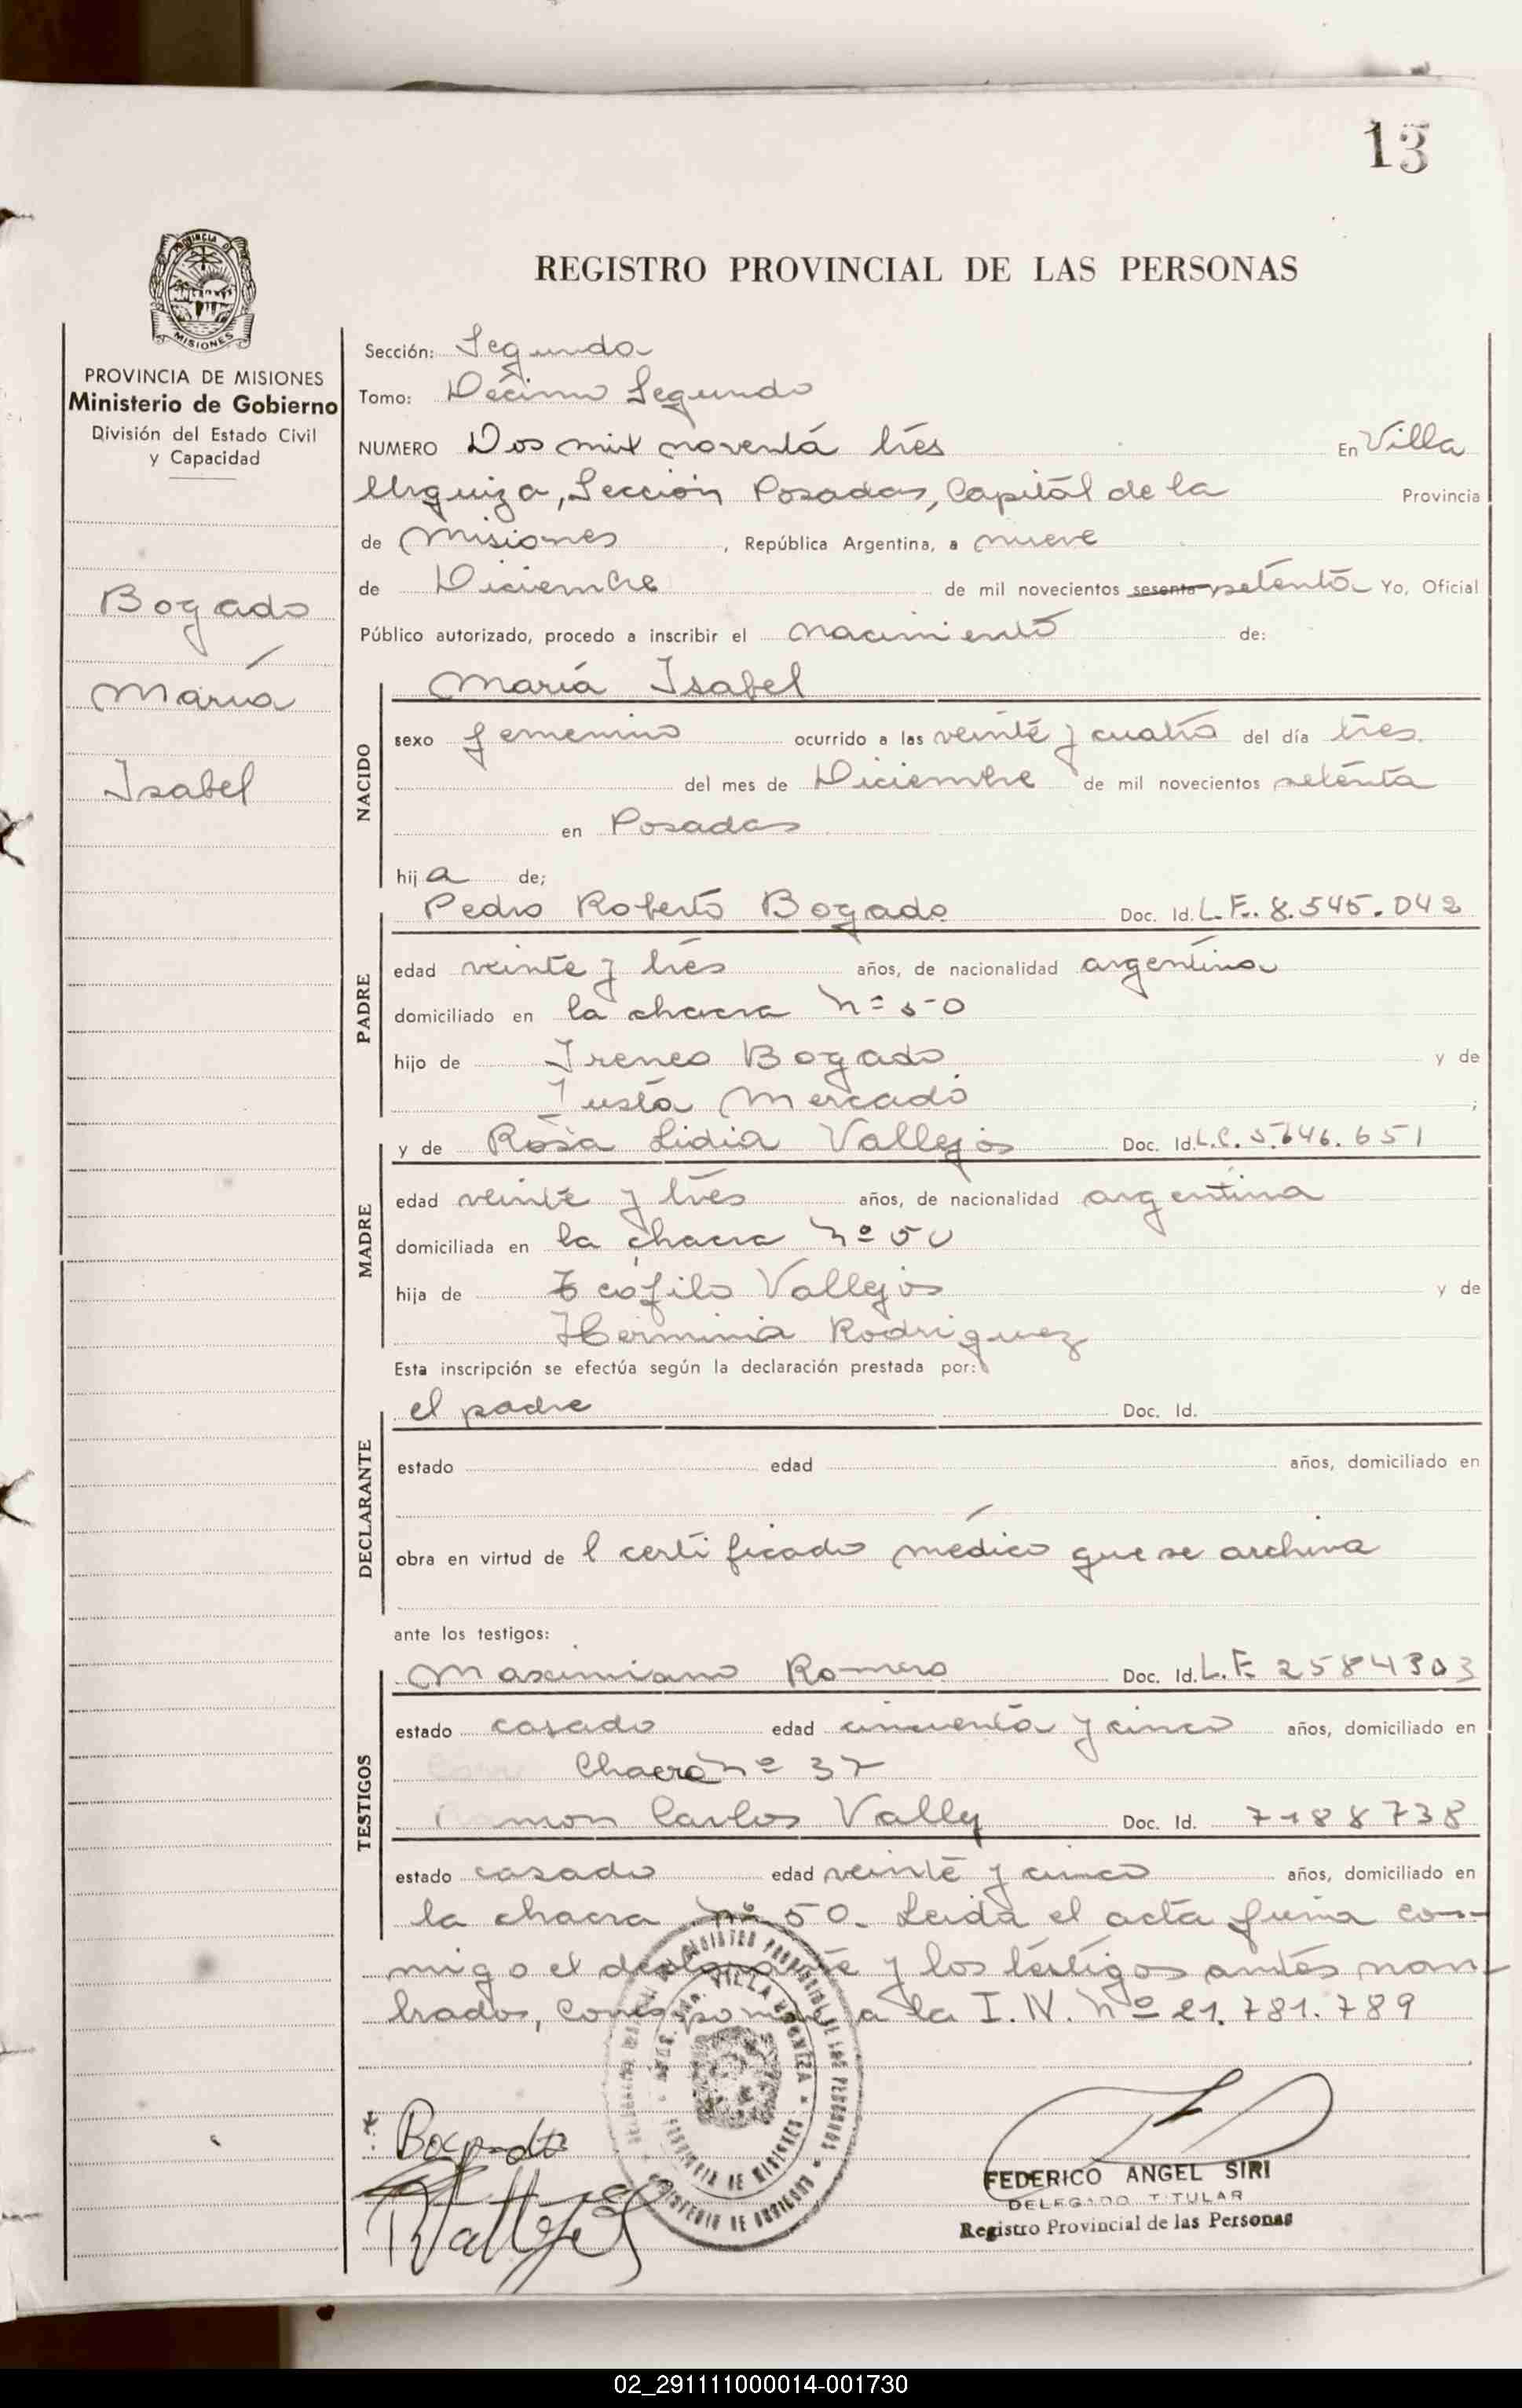 13
REGISTRO PROVINCIAL DE LAS PERSONAS
PROVINCIA DE MISIONES
Ministerio de Gobierno
División del Estado Civil
y Capacidad
Bogado
María
Isabel
Sección: Segunda
Tomo: Décimo Segundo
NUMERO Dos mil noventa tres En Villa
Urquiza, Sección Posadas, Capital de la Provincia
de Misiones, República Argentina, a nueve
de Diciembre de mil novecientos sesenta setenta Yo, Oficial
Público autorizado, procedo a inscribir el nacimiento de:
NACIDO
María Isabel
sexo femenino ocurrido a las veinte y cuatro del día tres
del mes de Diciembre de mil novecientos setenta
en Posadas
hija de;
PADRE
Pedro Roberto Bogado Doc. Id. L.E. 8.545.042
edad veinte y tres años, de nacionalidad argentina
domiciliado en la chacra Nº 50
hijo de Ireneo Bogado y de
Justa Mercado ;
MADRE
y de Rosa Lidia Vallejos Doc. Id. L.C. 5.646.651
edad veinte y tres años, de nacionalidad argentina
domiciliada en la chacra Nº 50
hija de Teófilo Vallejos y de
Herminia Rodriguez
Esta inscripción se efectúa según la declaración prestada por:
DECLARANTE
el padre Doc. Id.
estado edad años, domiciliado en
obra en virtud del certificado médico que se archiva
ante los testigos:
TESTIGOS
Maximiano Romero Doc. Id. L.E. 2584303
estado casado edad cincuenta y cinco años, domiciliado en
Chacra Nº 37
Carlos Vally Doc. Id. 7188738
estado casado edad veinte y cinco años, domiciliado en
la chacra Nº 50. Leida el acta firma con-
migo el declarante y los testigos antes nom-
brados, corresponde a la I.N. Nº 21.781.789
Bogado
FEDERICO ANGEL SIRI
DELEGADO TITULAR
Registro Provincial de las Personas
02_291111000014-001730